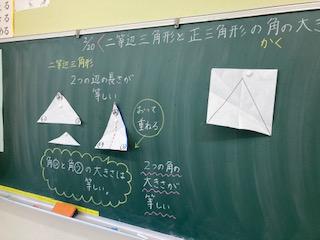 2/20 < 二等辺三角形と正三角形の角の大き
かく
二等辺三角形
2つの辺の長さが
等しい
おって
重ねる
角
と角
の大きさは
等しい。
2つの角の
大きさが
等しい